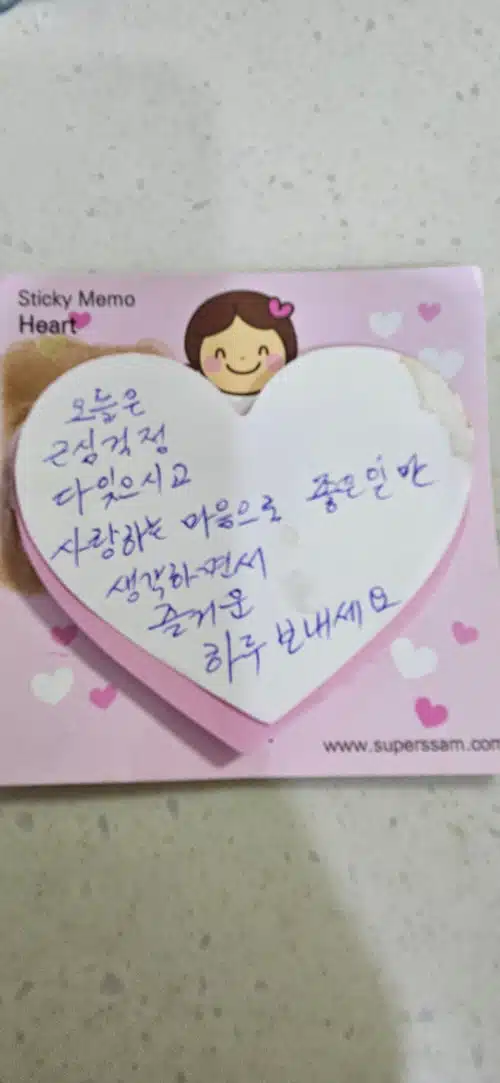 Sticky Memo
Heart
오늘은
근심걱정
다잊으시고
사랑하는 마음으로 좋은일만
생각하면서
즐거운
하루 보내세요
www.superssam.com